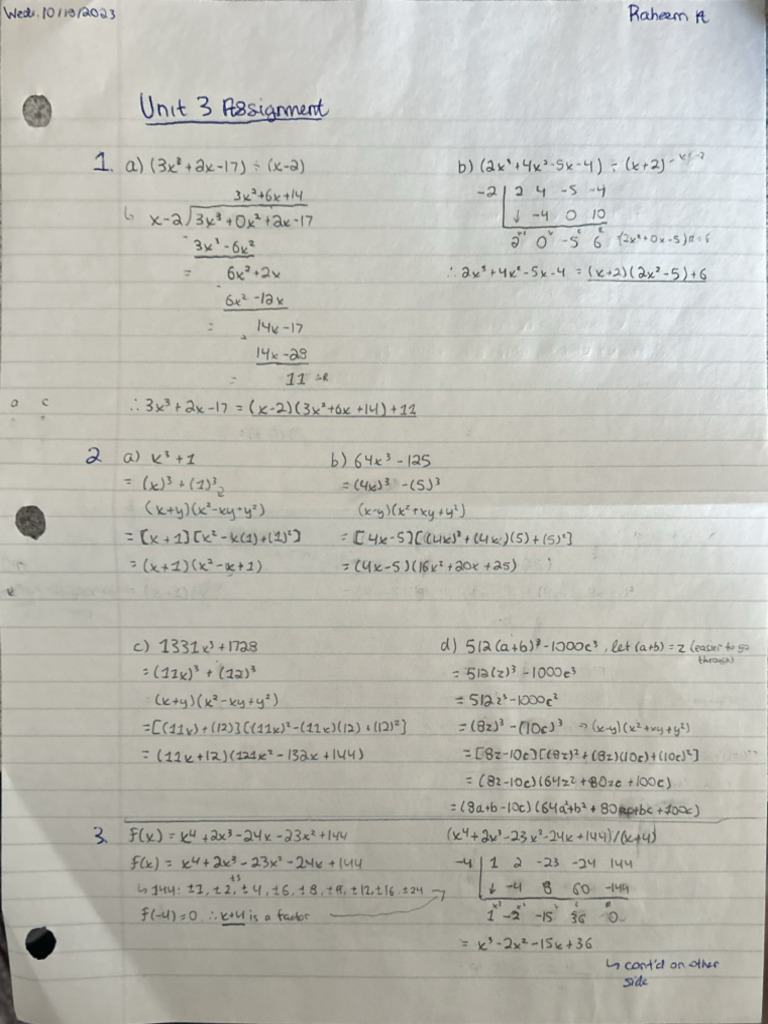 Wed. 10/18/2023
Raheem A
Unit 3 Assignment
1. a) (3x³+2x-17) ÷ (x-2)
3x²+6x+14
↳ x-2 √3x³+0x²+2x-17
3x³-6x²
= 6x²+2x
6x²-12x
= 14x-17
14x-28
= 11 ∴R
∴ 3x³+2x-17 = (x-2)(3x²+6x+14)+11
b) (2x³+4x²-5x-4) ÷ (x+2) → x=-2
-2 | 2 4 -5 -4
↓ -4 0 10
2 0 -5 6 (2x²+0x-5)R=6
∴ 2x³+4x²-5x-4 = (x+2)(2x²-5)+6
2 a) x³+1
= (x)³+(1)³
(x+y)(x²-xy+y²)
= [x+1][x²-x(1)+(1)²]
= (x+1)(x²-x+1)
b) 64x³-125
= (4x)³-(5)³
(x-y)(x²+xy+y²)
= [4x-5][(4x)²+(4x)(5)+(5)²]
= (4x-5)(16x²+20x+25)
c) 1331x³+1728
= (11x)³+(12)³
(x+y)(x²-xy+y²)
= [(11x)+(12)][(11x)²-(11x)(12)+(12)²]
= (11x+12)(121x²-132x+144)
d) 512(a+b)³-1000c³, let (a+b)=z (easier to go through)
= 512(z)³-1000c³
= 512z³-1000c³
= (8z)³-(10c)³ → (x-y)(x²+xy+y²)
= [8z-10c][(8z)²+(8z)(10c)+(10c)²]
= (8z-10c)(64z²+80zc+100c)
= (8a+b-10c)(64a²+b²+80a+bc+100c)
3. f(x) = x⁴+2x³-24x-23x²+144
f(x) = x⁴+2x³-23x²-24x+144
↳ 144: ±1, ±2, ±3, ±4, ±6, ±8, ±9, ±12, ±16, ±24
f(-4)=0 ∴ x+4 is a factor
(x⁴+2x³-23x²-24x+144)/(x+4)
-4 | 1 2 -23 -24 144
↓ -4 8 60 -144
1 -2 -15 36 0
= x³-2x²-15x+36
↳ cont'd on other
side